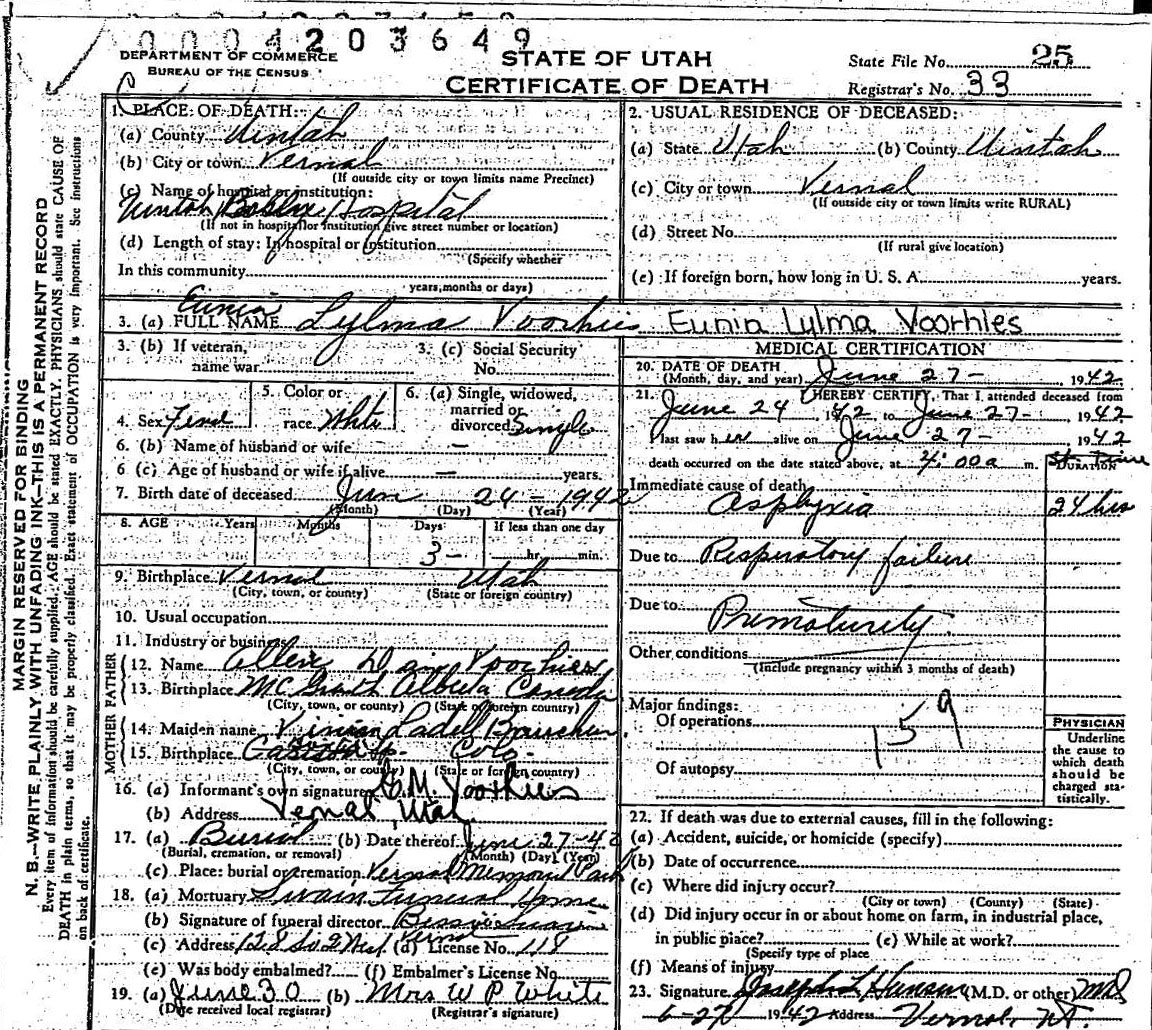 0004203649
DEPARTMENT OF COMMERCE
BUREAU OF THE CENSUS
STATE OF UTAH
CERTIFICATE OF DEATH
State File No. 25
Registrar's No. 33
MARGIN RESERVED FOR BINDING
N. B.—WRITE PLAINLY, WITH UNFADING INK—THIS IS A PERMANENT RECORD
Every item of information should be carefully supplied. AGE should be stated EXACTLY. PHYSICIANS should state CAUSE OF
DEATH in plain terms, so that it may be properly classified. Exact statement of OCCUPATION is very important. See instructions
on back of certificate.
1. PLACE OF DEATH:
(a) County Uintah
(b) City or town Vernal
(If outside city or town limits name Precinct)
(c) Name of hospital or institution:
Uintah Hospital
(If not in hospital or institution give street number or location)
(d) Length of stay: In hospital or institution
(Specify whether
In this community
years, months or days)
2. USUAL RESIDENCE OF DECEASED:
(a) State Utah (b) County Uintah
(c) City or town Vernal
(If outside city or town limits write RURAL)
(d) Street No.
(If rural give location)
(e) If foreign born, how long in U. S. A. years.
Eunia
3. (a) FULL NAME Lylma Voorhies Eunia Lylma Voorhies
3. (b) If veteran,
name war
3. (c) Social Security
No.
4. Sex
5. Color or
race White
6. (a) Single, widowed,
married or
divorced Single
6. (b) Name of husband or wife —
6 (c) Age of husband or wife if alive — years.
7. Birth date of deceased Jun 24 - 1942
(Month) (Day) (Year)
8. AGE Years Months Days If less than one day
3 - hr. min.
9. Birthplace Vernal Utah
(City, town, or county) (State or foreign country)
10. Usual occupation
11. Industry or business
FATHER
12. Name Voorhies
13. Birthplace Alberta Canada
(City, town, or county) (State or foreign country)
MOTHER
14. Maiden name Ladell
15. Birthplace Colo.
(City, town, or county) (State or foreign country)
16. (a) Informant's own signature G. M. Voorhies
(b) Address Vernal, Utah
17. (a) Burial (b) Date thereof June 27-42
(Burial, cremation, or removal) (Month) (Day) (Year)
(c) Place: burial or cremation Vernal Memorial Park
18. (a) Mortuary Swain Funeral Home
(b) Signature of funeral director Bessie Swain
(c) Address Vernal (d) License No. 118
(e) Was body embalmed? (f) Embalmer's License No.
19. (a) June 30 (b) Mrs W P White
(Date received local registrar) (Registrar's signature)
MEDICAL CERTIFICATION
20. DATE OF DEATH
(Month, day, and year) June 27 - 1942
21. I HEREBY CERTIFY, That I attended deceased from
June 24 1942 to June 27 - 1942
I last saw her alive on June 27 - 1942
death occurred on the date stated above, at 4:00 a m.
DURATION
Immediate cause of death
Asphyxia 24 hrs
Due to Respiratory failure
Due to Prematurity
Other conditions
(Include pregnancy within 3 months of death)
Major findings:
Of operations
159
Of autopsy
PHYSICIAN
Underline
the cause to
which death
should be
charged sta-
tistically.
22. If death was due to external causes, fill in the following:
(a) Accident, suicide, or homicide (specify)
(b) Date of occurrence
(c) Where did injury occur?
(City or town) (County) (State)
(d) Did injury occur in or about home on farm, in industrial place,
in public place? (e) While at work?
(Specify type of place
(f) Means of injury
23. Signature Joseph L Hansen (M.D. or other) MD
6-27 1942 Address Vernal, Ut.